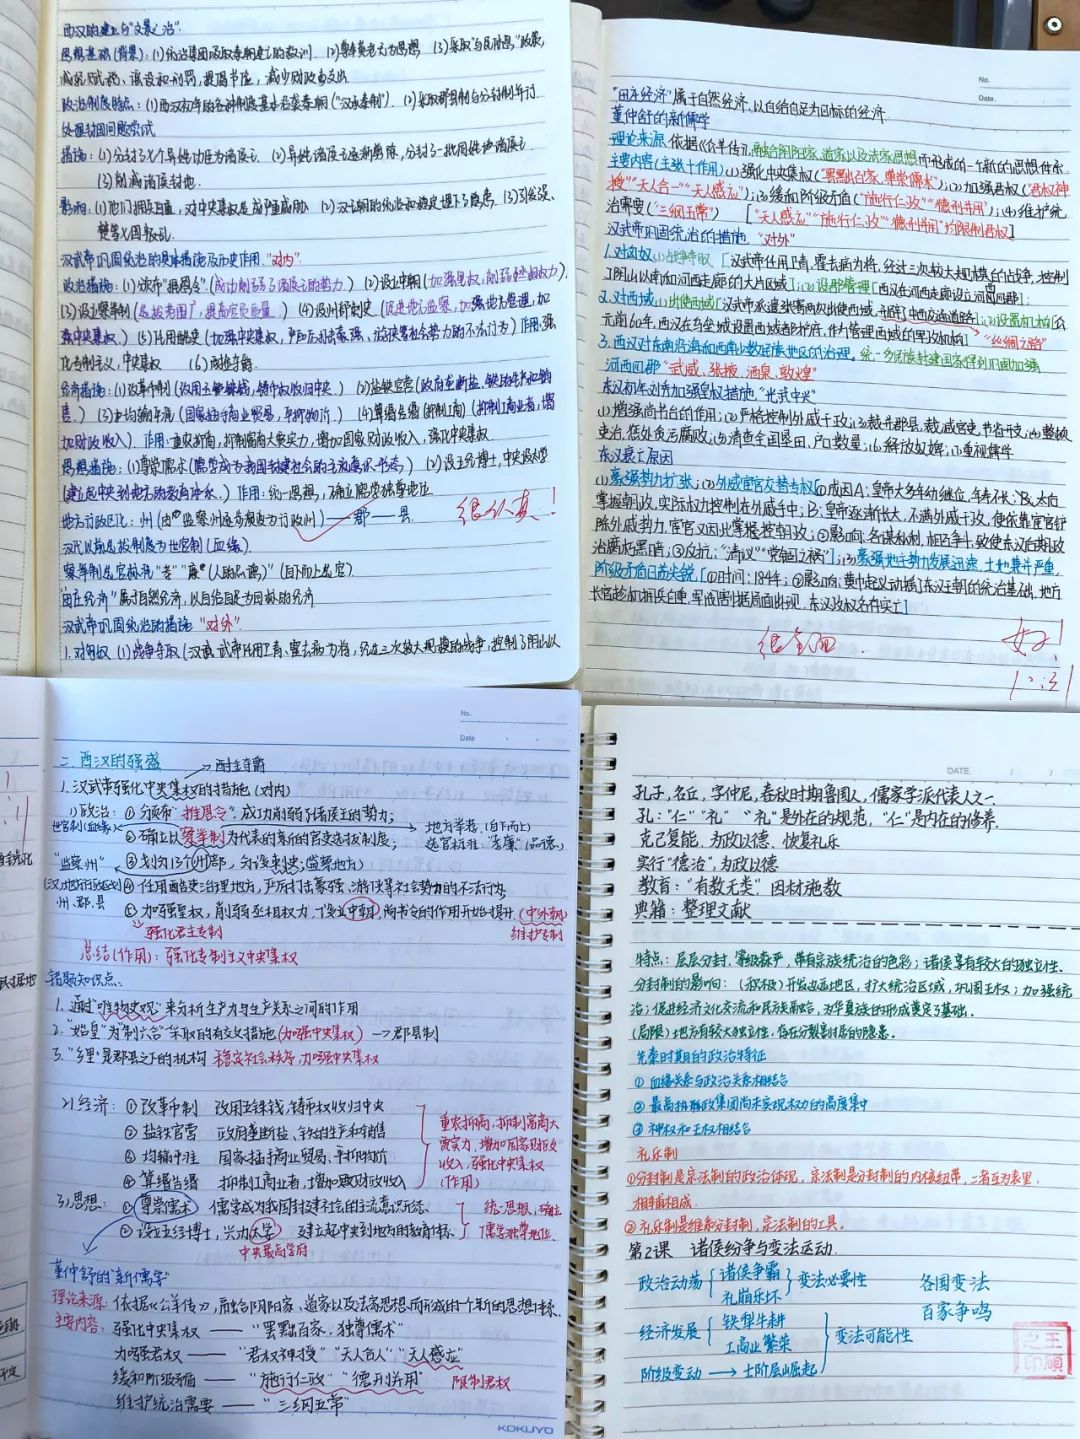 西汉的建立与"文景之治".
思想基础(背景): (1)统治集团吸取秦朝速亡的教训. (2)尊奉黄老无为思想 (3)采取"与民休息"政策,
减轻赋税、谋役和刑罚,提倡节俭,减少财政支出
政治制度特点: (1)西汉初年的各种制度基本沿袭秦朝("汉承秦制"). (2)采取郡县制与分封制并行
处理封国问题尝试
措施: (1)分封了七个异姓功臣为诸侯王. (2)异姓诸侯王逐渐剪除,分封了一批同姓诸侯王
(3)削减诸侯封地.
影响: (1)他们拥兵自重,对中央集权造成严重威胁 (2)汉王朝的统治和稳定埋下了隐患. (3)引发吴、
楚等七国叛乱.
汉武帝巩固统治的具体措施及历史作用. "对内".
政治措施: (1)颁布"推恩令". (成功削弱了诸侯王的势力) (2)设中朝(加强皇权,削弱丞相权力).
(3)设立察举制 (4)设州部刺史
化专制主义、中央集权 (6)
经济措施: (1)改革币制(改用五铢钱,铸币权收归中央) (2)盐铁官营(政府垄断盐、铁的生产和销
售). (3)均输平准(国家插手商业贸易,平抑物价). (4)算缗告缗(抑制工商)(抑制工商业者,增
加财政收入). 作用: 重农抑商,抑制富商大贾实力,增加国家财政收入,强化中央集权
思想措施: (1)尊崇儒术(儒学成为我国封建社会的主流意识形态) (2)设五经博士,中央设太学
(建立起中央到地方的教育体系.) 作用: 统一思想,确立儒学独尊地位
地方行政区化: 州(由监察州逐步演变为行政州)——郡——县.
很认真!
汉代以前选拔制度为世官制(血缘).
察举制选官标准"孝""廉"(人的品德)"(自下而上选官)
"田庄经济"属于自然经济,以自给自足为目标的经济
汉武帝巩固统治的措施 "对外".
1.对匈奴 (1)战争夺取(汉武帝任用卫青、霍去病为将,经过三次较大规模的战争,控制了阴山以
No.
Date
"田庄经济"属于自然经济,以自给自足为目标的经济
董仲舒的新儒学
理论来源 依据《公羊传》,融合阴阳家、道家以及法家思想而形成的一个新的思想体系.
主要内容(主张十作用) (1)强化中央集权("罢黜百家,尊崇儒术"); (2)加强君权("君权神
授""天人合一""天人感应"); (3)缓和阶级矛盾("施行仁政""德刑并用"); (4)维护统
治需要("三纲五常") ["天人感应""施行仁政""德刑并用"均限制君权]
汉武帝巩固统治的措施. "对外"
1.对匈奴 (1)战争夺取 [汉武帝任用卫青、霍去病为将,经过三次较大规模的战争,控制
了阴山以南和河西走廊的大片区域]; (2)设郡管理[西汉在河西走廊设河西四郡];
2.对西域 (1)出使西域[汉武帝派遣张骞两次出使西域,开辟了中西交通道路]; (2)设置机构[公
元前60年,西汉在乌垒城设置西域都护府,作为管理西域的军政机构] "丝绸之路"
3.西汉对东南沿海和西南少数民族地区的治理. 统一多民族封建国家得到巩固加强
河西四郡 "武威、张掖、酒泉、敦煌"
东汉初年刘秀加强皇权措施. "光武中兴"
(1)增强尚书台的作用; (2)严格控制外戚干政; (3)裁并郡县,裁减官吏,节省开支; (4)整顿
吏治,惩处贪污腐败; (5)清查全国垦田、户口数量; (6)释放奴婢; (7)重视儒学
东汉衰亡原因
(1)豪强势力扩张; (2)外戚宦官交替专权[①成因A:皇帝大多年幼继位,年寿不长; B:太后
掌握朝政,实际权力控制在外戚手中; B:皇帝逐渐长大,不满外戚干政,便依靠宦官铲
除外戚势力,宦官又因此掌握控朝政; ②影响:各谋私利,相互争斗,致使东汉后期政
治腐朽黑暗; ③反抗: "清议""党锢之祸"]; (3)豪强地主势力发展迅速,土地兼并严重,
阶级矛盾日益尖锐,[①时间: 184年; ②影响: 黄巾起义动摇了东汉王朝的统治基础,地方
长官趁机拥兵自重,军阀割据局面出现,东汉政权名存实亡]
很全面. 好!
No.
Date
二.西汉的强盛
1.汉武帝强化中央集权的措施(对内)
(1)政治: ①颁布"推恩令",成功削弱了诸侯王的势力;
世官制(血缘) ②确立以察举制为代表的新的官吏选拔制度; 地方举荐 (自下而上)
选官标准:"孝廉"(品德)
"监察州" ③划为13个州部,分设刺史;(监察地方)
(汉)地方行政区划 ④任用酷吏治理地方,严厉打击豪强、游侠等社会势力的不法行为;
州、郡、县
⑤加强皇权,削弱丞相权力. (设立中朝)尚书令的作用开始提升. (中外朝)
强化君主专制 维护专制
总结(作用): 强化专制主义中央集权
错题知识点.
1.通过"唯物史观"来分析生产力与生产关系之间的作用
2."始皇"为"制六合"采取的有效措施(加强中央集权) →郡县制
3."乡里"是郡县之下的机构 稳定社会秩序,加强中央集权
2)经济: ①改革币制 改用五铢钱,铸币权收归中央
②盐铁官营 政府垄断盐、铁的生产和销售
③均输平准 国家插手商业贸易、平抑物价
④算缗告缗 抑制工商业者,增加政府财政收入
重农抑商,抑制富商大
贾实力,增加国家财政
收入,强化中央集权
(作用)
3)思想: ①尊崇儒术 儒学成为我国封建社会的主流意识形态、
②设立五经博士,兴办太学 建立起中央到地方的教育体系.
统一思想,确立
儒学独尊地位.
中央最高学府
董仲舒的"新儒学"
理论来源: 依据《公羊传》,融合阴阳家、道家以及法家思想而形成的一个新的思想体系.
主要内容: 强化中央集权——"罢黜百家,独尊儒术"
加强君权——"君权神授""天人合一""天人感应"
缓和阶级矛盾——"施行仁政""德刑并用" 限制君权
维护统治需要——"三纲五常"
KOKUYO
DATE. / /
孔子,名丘,字仲尼,春秋时期鲁国人,儒家学派代表人之一.
孔:"仁""礼" "礼"是外在的规范,"仁"是内在的修养.
克己复礼,为政以德 恢复礼乐
实行"德治",为政以德
教育:"有教无类" 因材施教
典籍:整理文献
特点: 层层分封、等级森严,带有宗族统治的色彩; 诸侯享有较大的独立性.
分封制的影响: (积极)开发边远地区,扩大统治区域,巩固王权; 加强统
治; 促进经济文化交流和民族融合,为华夏族的形成奠定了基础.
(局限)地方有较大独立性,存在分裂割据的隐患.
先秦时期的政治特征
①血缘关系与政治关系相结合
②最高执政集团尚未实现权力的高度集中
③神权和王权相结合
礼乐制
①分封制是宗法制的政治体现,宗法制是分封制的内核纽带,二者互为表里.
相辅相成.
②礼乐制是维系分封制,宗法制的工具.
第2课 诸侯纷争与变法运动.
政治动荡 诸侯争霸 礼崩乐坏 变法必要性 各国变法
百家争鸣
经济发展 铁犁牛耕 工商业繁荣 变法可能性
阶级变动 → 士阶层崛起